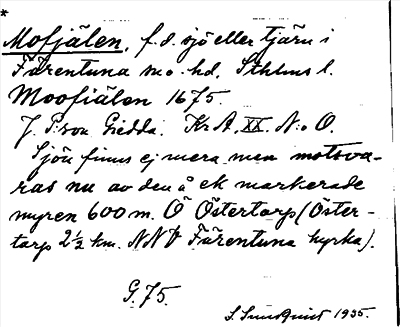 *
Mofjälen, f.d. sjö eller tjärn i
Färentuna sn o. hd, Sthlms l.
Moofiälen 1675.
J. P:son Gedda. Kr A. XX. N:o O.
Sjön finns ej mera men motsva-
ras nu av den å ek markerade
myren 600 m. Ö Östertorp (Öster-
torp 2½ km. NNV Färentuna kyrka).
G. 75.
S. Sundquist 1935.